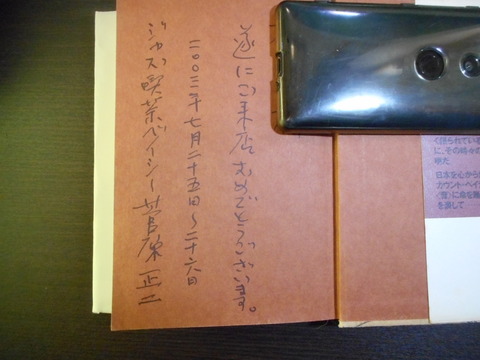 遂にご来店おめでとうございます。
二〇〇三年七月二十五日～二十六日
ジャズ喫茶ベイシー 菅原正二
く限られている
に、その時々の
日本を心から
カウント・ベイ